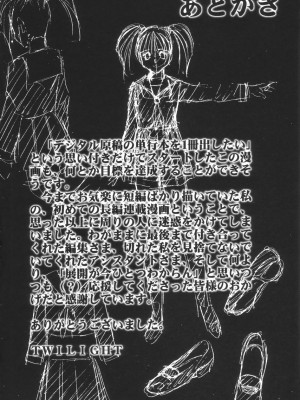 あとがき
「デジタル原稿の単行本を1冊出したい」
という思い付きだけでスタートしたこの漫
画も、何とか目標を達成することができそ
うです。
今までお気楽に短編ばかり描いていた私
の、初めての長編連載漫画ということで、
思った以上に周りの人に迷惑をかけてしま
いました。わがままに最後まで付き合って
くれた編集さま、切れた私を見捨てないで
いてくれたアシスタントさま、そして何よ
り「展開が今ひとつわからん」と思いつ
つも、(?)応援してくださった皆様のおか
げだと感謝しています。
ありがとうございました。
TWILIGHT